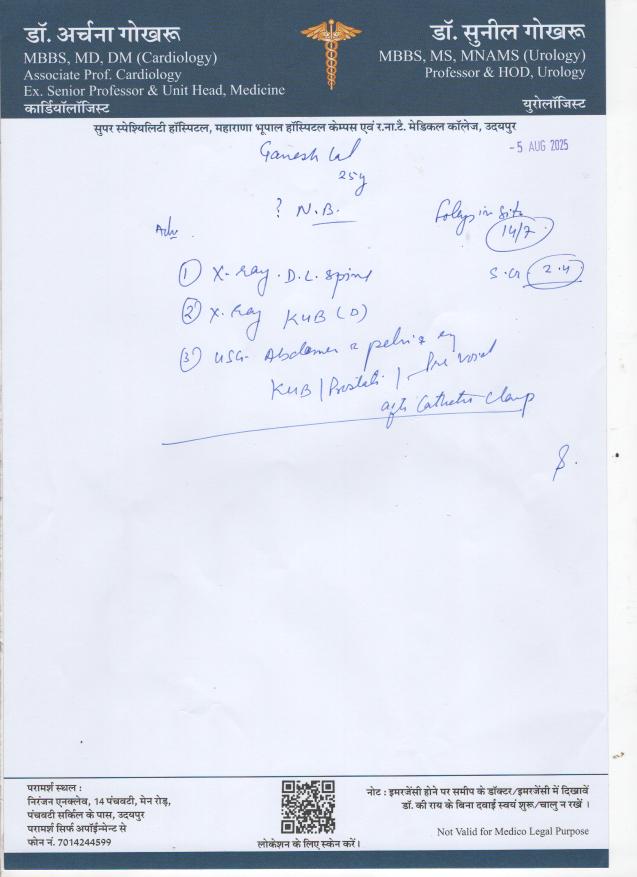 डॉ. अर्चना गोखरू
MBBS, MD, DM (Cardiology)
Associate Prof. Cardiology
Ex. Senior Professor & Unit Head, Medicine
कार्डियॉलॉजिस्ट
डॉ. सुनील गोखरू
MBBS, MS, MNAMS (Urology)
Professor & HOD, Urology
युरोलॉजिस्ट
सुपर स्पेशियलिटी हॉस्पिटल, महाराणा भूपाल हॉस्पिटल केम्पस एवं र.ना.टै. मेडिकल कॉलेज, उदयपुर
- 5 AUG 2025
Ganesh Lal
25y
? N.B.
Foleys in situ
14/7
Adv.
S.Cr 2.4
① X-ray. D.L. Spine
② X-ray KUB (D)
③ USG. Abdomen & pelvis
KUB | Prostate | Pre void
after Catheter Clamp
परामर्श स्थल :
निरंजन एनक्लेव, 14 पंचवटी, मेन रोड़,
पंचवटी सर्किल के पास, उदयपुर
परामर्श सिर्फ अपॉईन्मेन्ट से
फोन नं. 7014244599
लोकेशन के लिए स्केन करें।
नोट : इमरजेंसी होने पर समीप के डॉक्टर/इमरजेंसी में दिखावें
डॉ. की राय के बिना दवाई स्वयं शुरू/चालु न रखें ।
Not Valid for Medico Legal Purpose